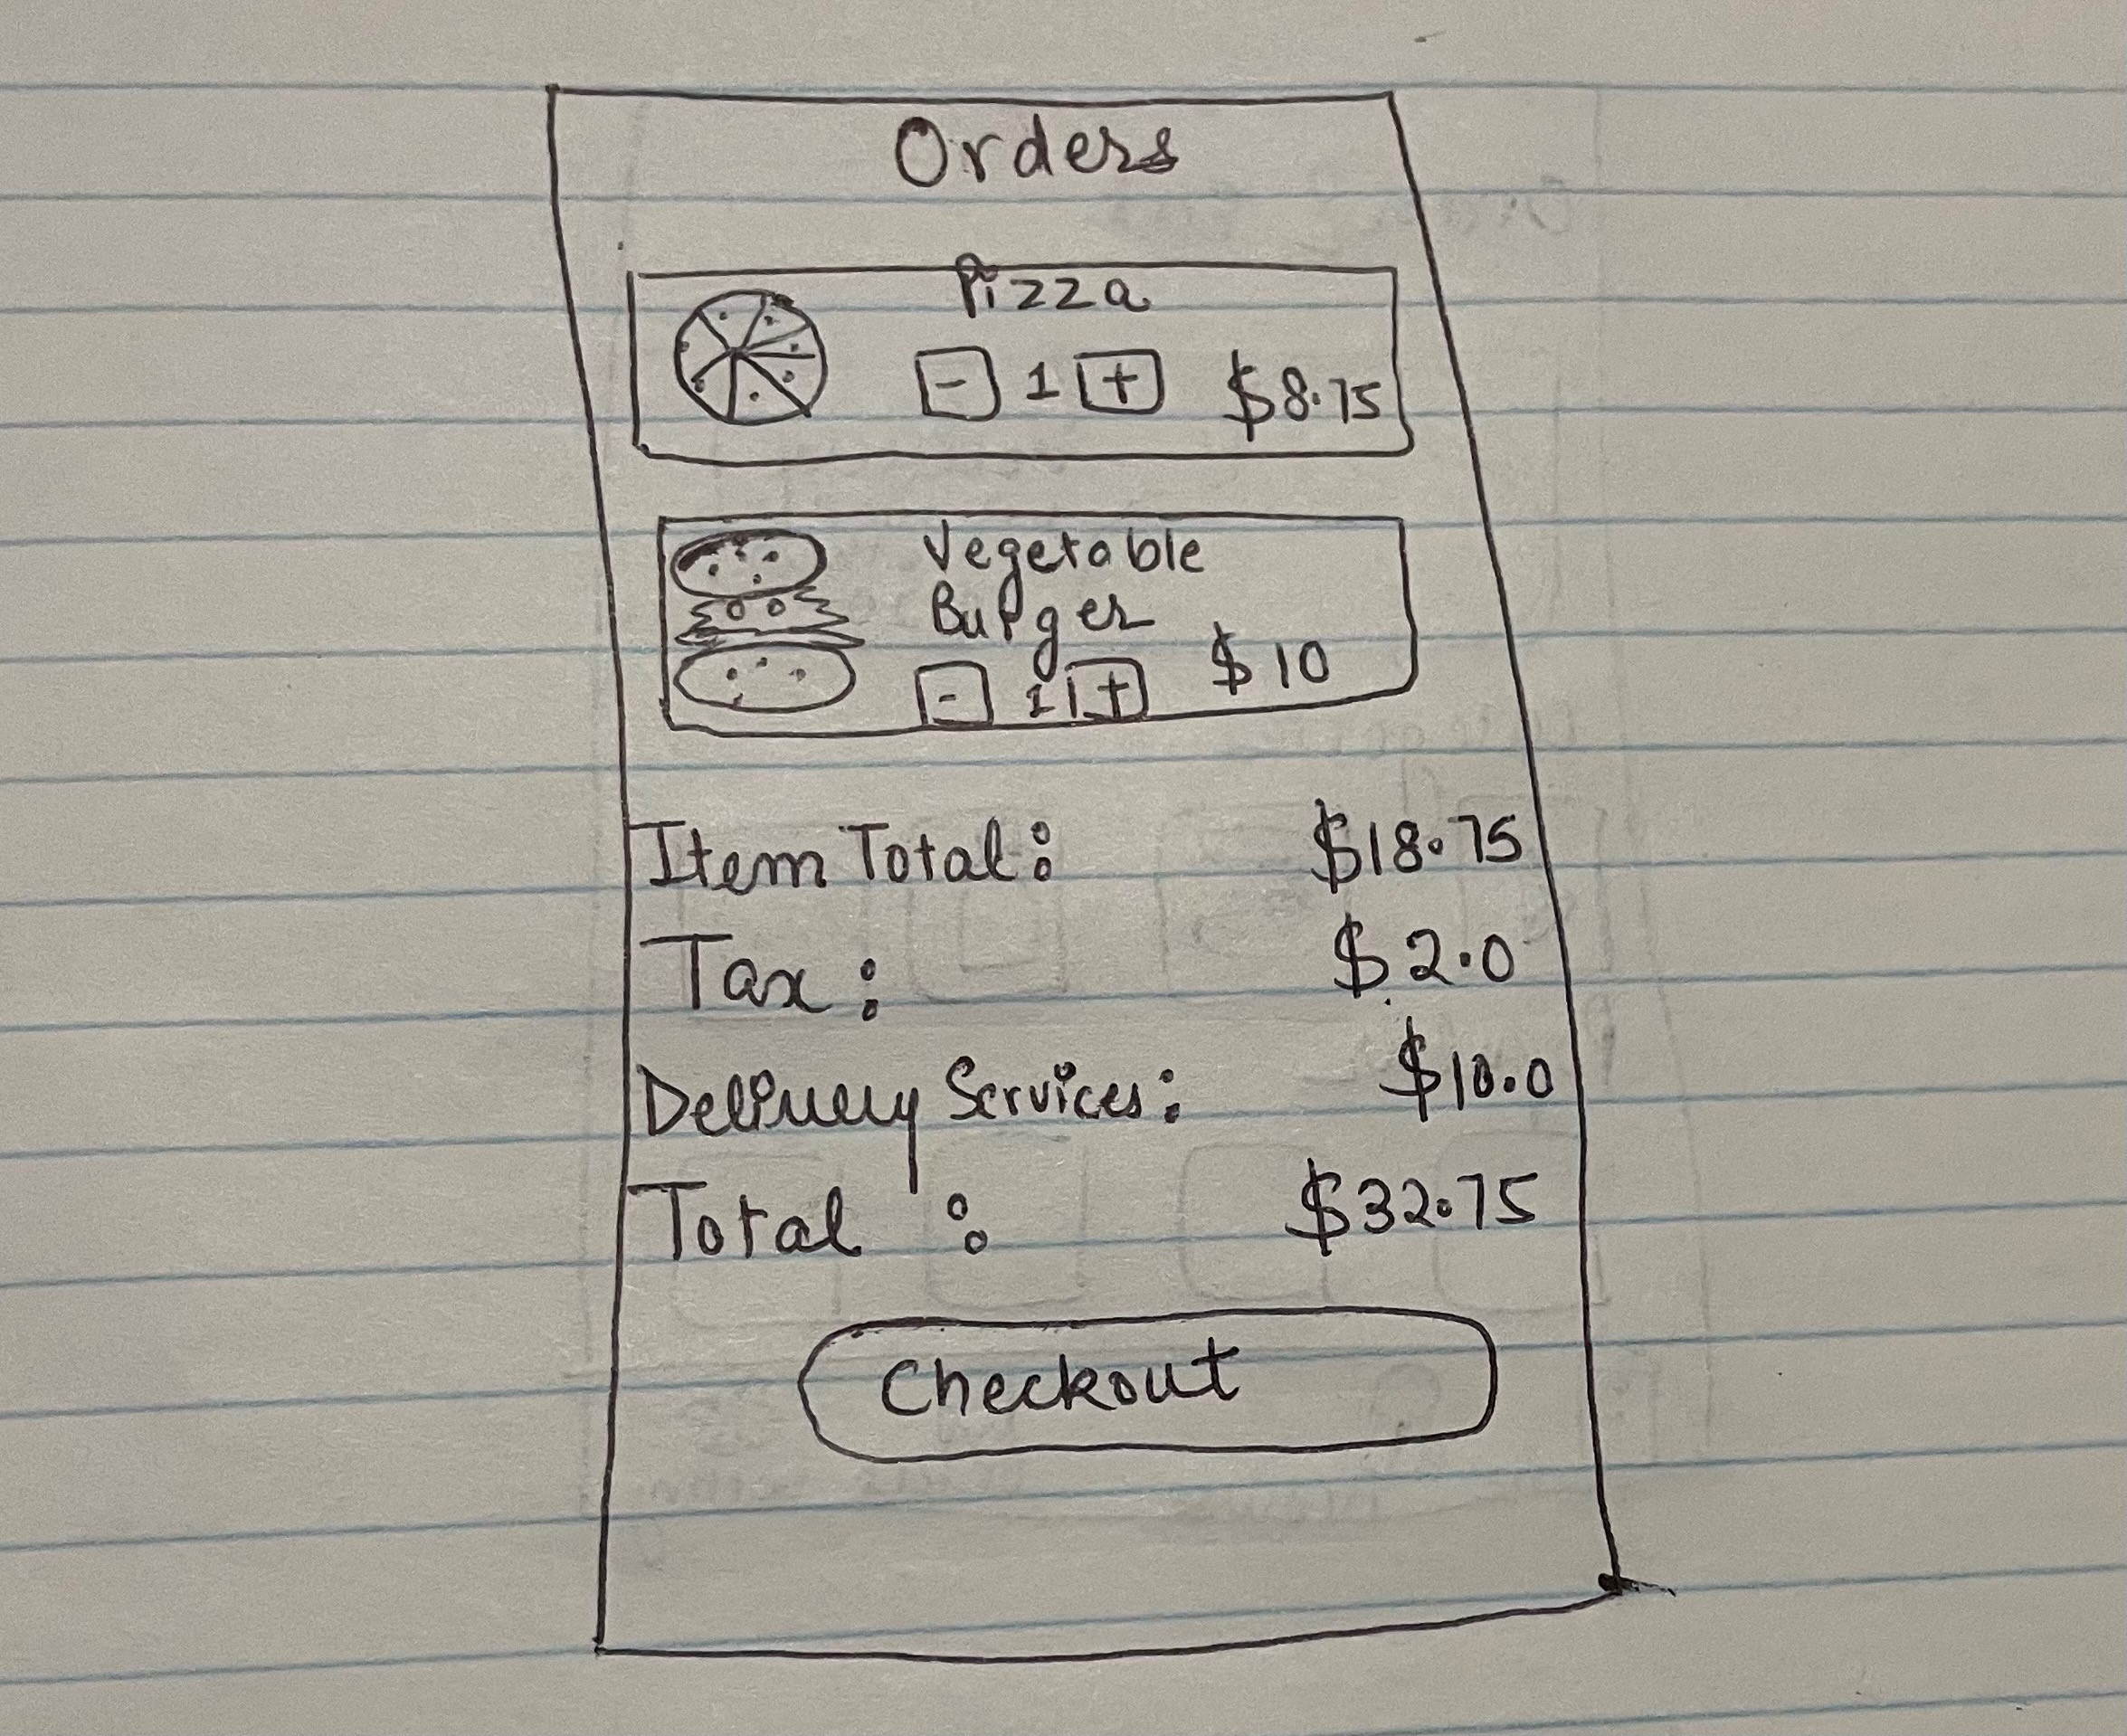 Orders
Pizza
- 1 + $8.75
Vegetable
Burger
- 1 + $10
Item Total: $18.75
Tax: $2.0
Delivery Services: $10.0
Total : $32.75
Checkout